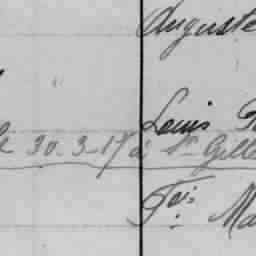 Auguste
Louis
30-3-17 à St Gille
Fois Ma